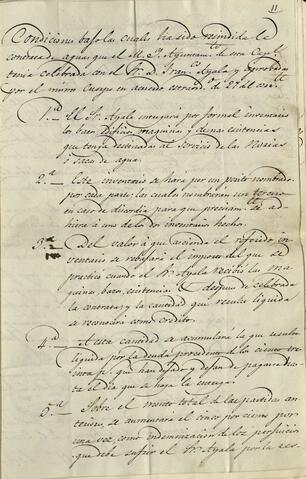 11
Condiciones bajo las cuales ha sido rescindida la
contrata de aguas que el M. Y. Ayuntam.to de esta Cap.l
tenia celebrada con el Sr. D. Fran.co Ayala y aprobadas
por el mismo Cuerpo en acuerdo estraord.o de 27 del
1.a El Sr. Ayala entregará por formal inventario
los baos, edificios maquinas y demas existencias
que tenga destinadas al servicio de las
ó saca de agua.
2.a Este inventario se hara por un perito nombrado
por cada parte; las cuales nombrarán un tercero
en caso de discordia para que precisam.te se ad-
hiera á uno de los inventarios hechos.
3.a Del valor á que ascienda el referido in-
ventario se rebajará el importe del que se
practicó cuando el Sr. Ayala recibió las ma-
quinas, baos, existencias & despues de celebrada
la contrata; y la cantidad que resulte liquida
se reconocerá como credito.
4.a A esta cantidad se acumulará la que resulte
liquida por la deuda procedente de los ciento tre-
inta p.s que han dejado y dejan de pagarse has-
ta el dia que se haga la entrega.
5.a Sobre el monto total de las partidas an-
teriores, se aumentará el cinco por ciento por
una vez, como indemnizacion de los perjuicios
que debe sufrir el Sr. Ayala por la res-